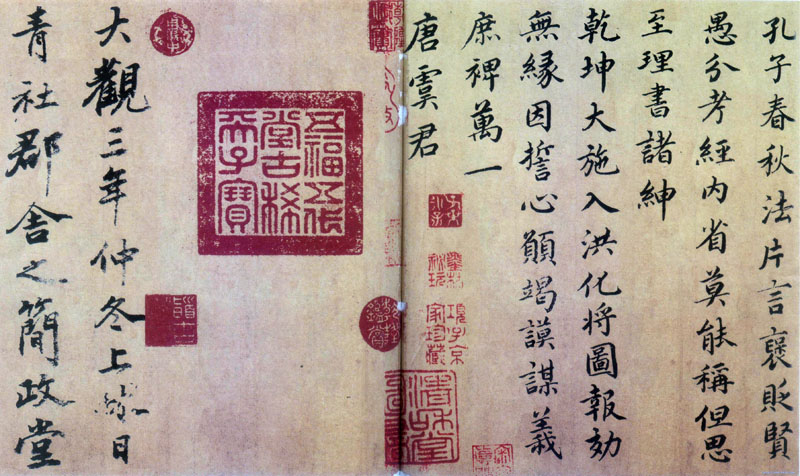 孔子春秋法片言褒貶賢
愚分考經內省莫能稱但思
至理書諸紳
乾坤大施入洪化將圖報効
無縁因誓心願竭謨謀義
庶裨萬一
唐虞君
項子京
家珍藏
五福五代
堂古稀
天子寶
大觀三年仲冬上日
青社郡舍之簡政堂